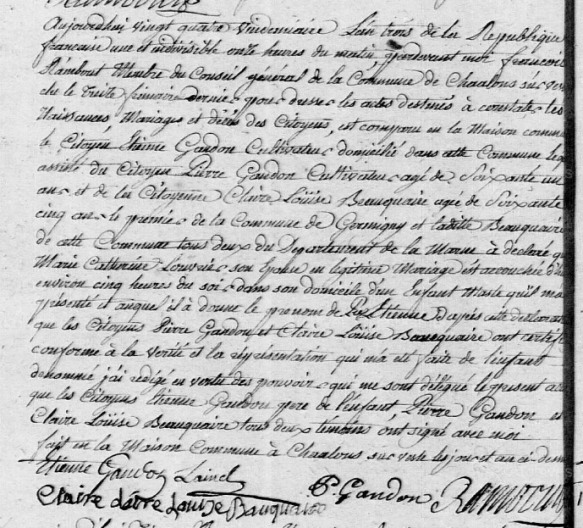 Aujourdhui vingt quatre Vindemiaire L'an trois de la Republique
francaise une et indivisible onze heures du matin pardevant moi francois
Membre du Conseil général de la Commune de Chaalons sur vesle
le Treize frimaire dernier pour dresser les actes destinés à constater les
Naissances Mariages et décès des Citoyens, est comparu en la Maison commune
le Citoyen Etienne Gandon Cultivateur domicilié dans cette Commune lequel
assisté du Citoyen Pierre Gandon Cultivateur agé de Soixante un
ans et de la Citoyenne Claire Loüise Beauquaire agée de Soixante
cinq ans le premier de la Commune de Germigny et ladite Beauquaire
de cette Commune tous deux du Departement de la Marne à déclaré que
Marie Catherine son Epouse en légitime Mariage est accouchée
environ cinq heures du soir dans son domicile d'un Enfant Masle qu'il m'a
présenté et auquel il à donné le prenom de Etienne D'après cette declaration
que les Citoyens Pierre Gandon et Claire Loüise Beauquaire ont certifié
conforme à la Verité et la représentation qui m'a été faite de l'enfant
denommé j'ai redigé en vertu des pouvoirs qui me sont délégué le present acte
que les Citoyens Etienne Gandon pere de l'enfant, Pierre Gandon et
Claire Loüise Beauquaire tous deux temoins ont signé avec moi
fait en la Maison Commune à Chaalons sur vesle les jour et an ci-dessus
Etienne Gandon Lainel P. Gandon
Claire Louise Bauquaire